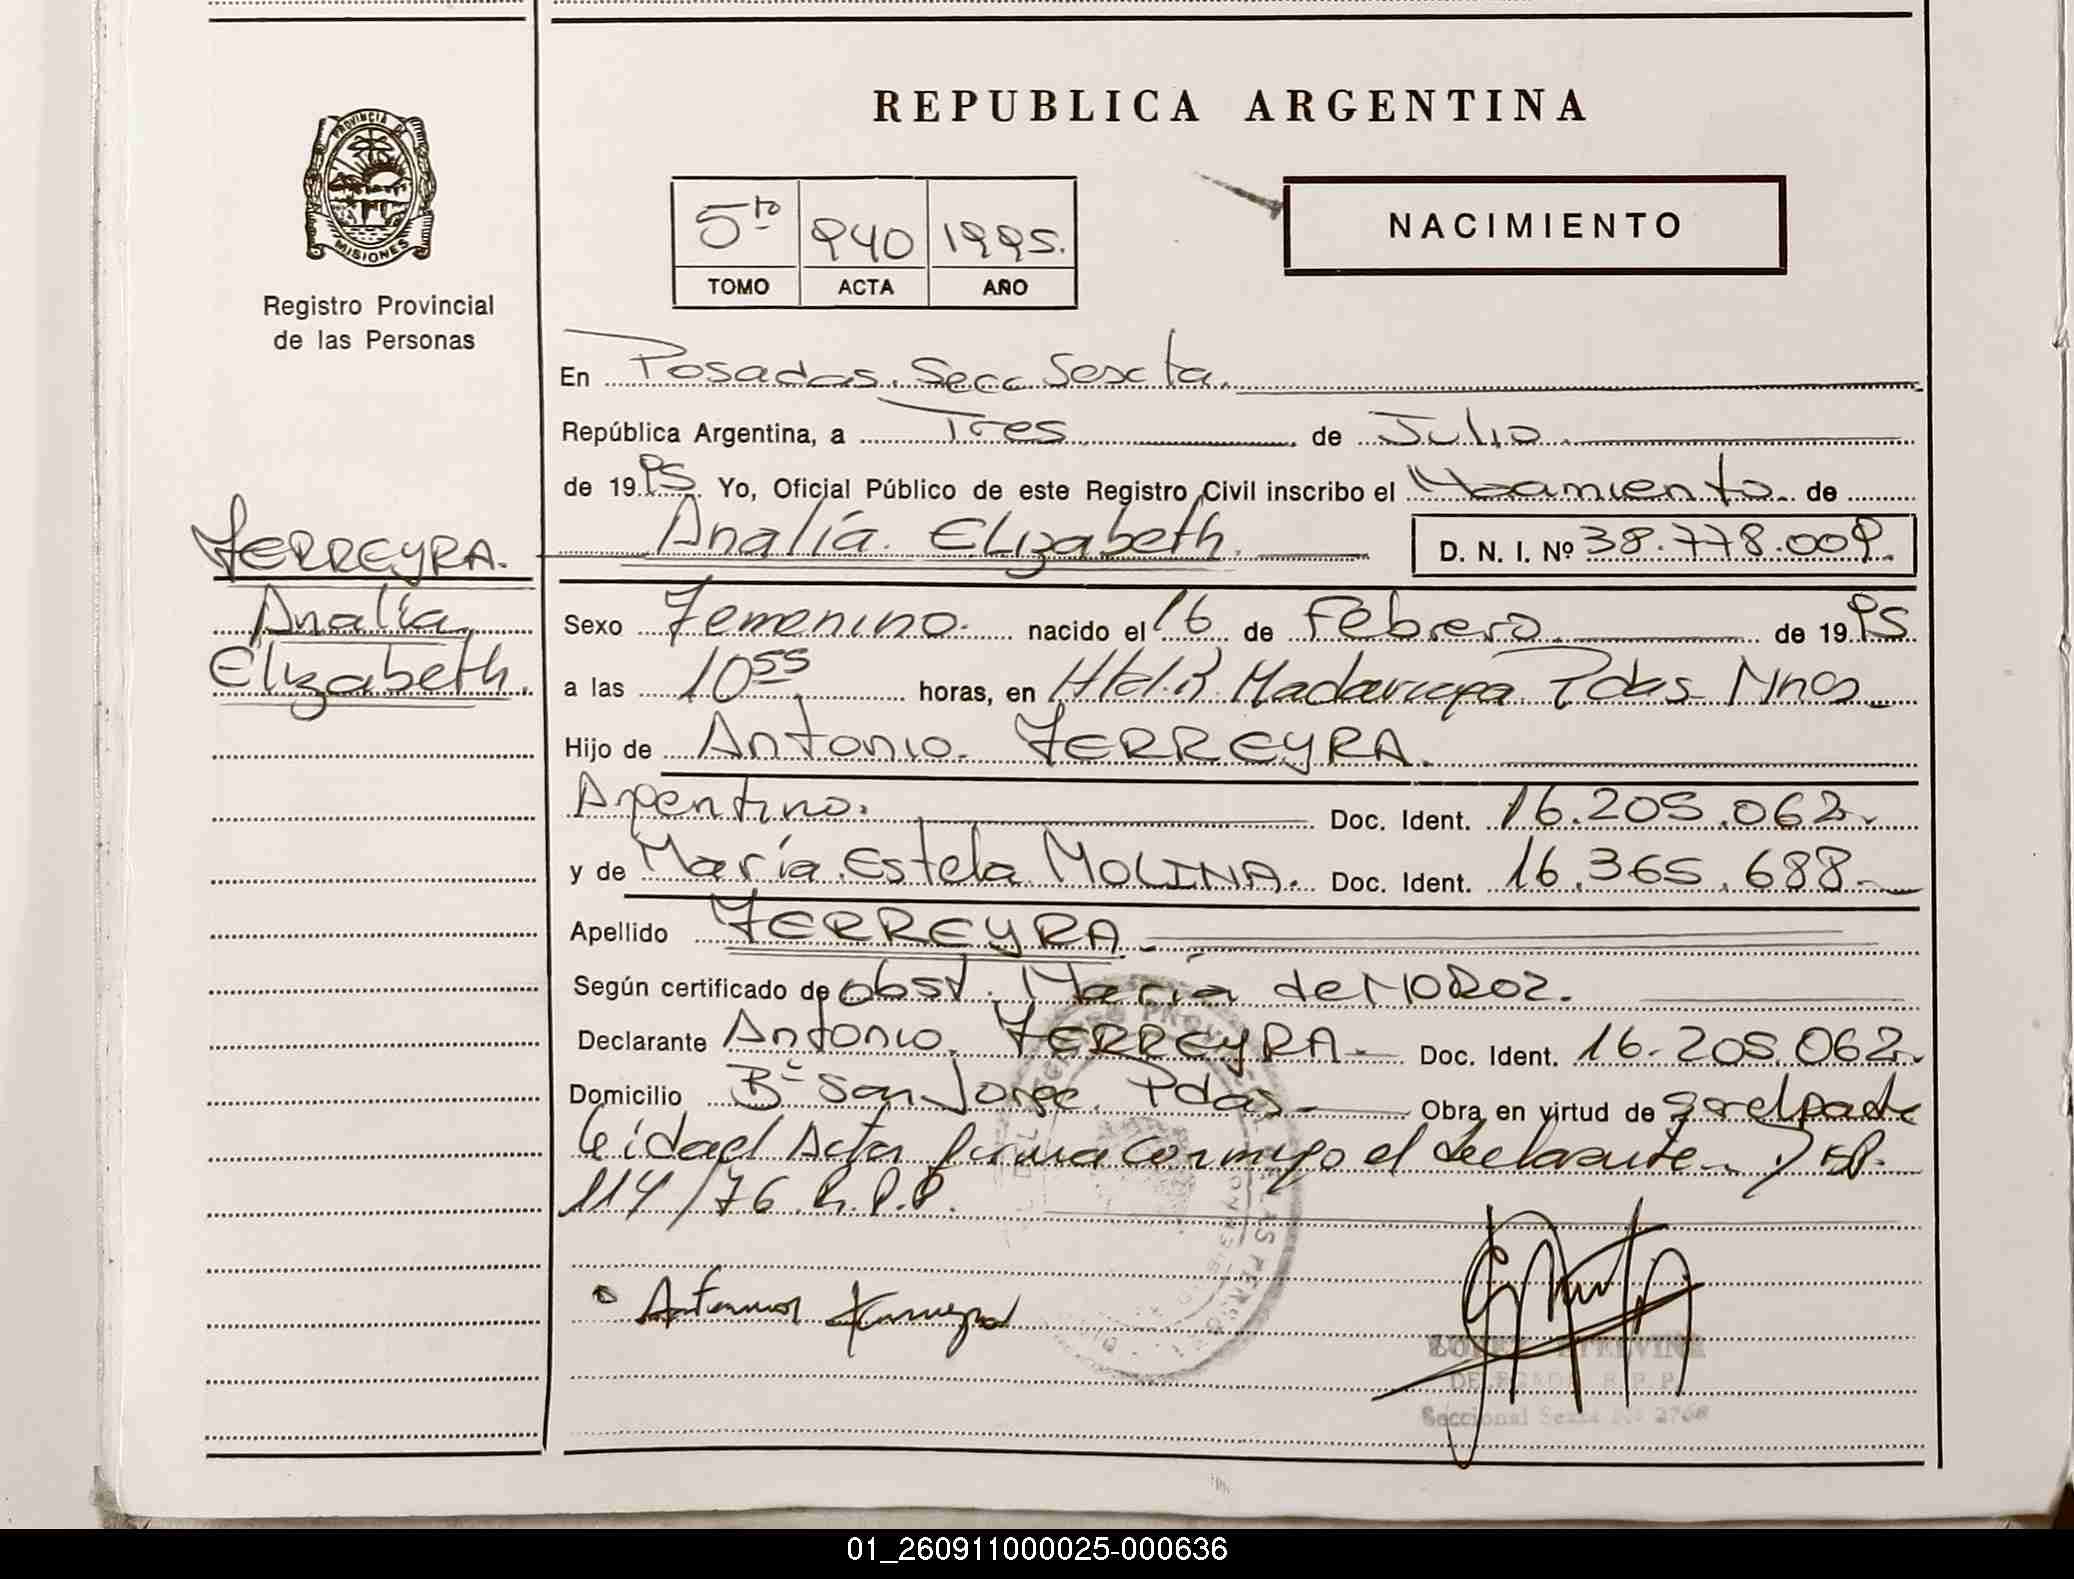 REPUBLICA ARGENTINA
PROVINCIA DE
MISIONES
Registro Provincial
de las Personas
5to 940 1995.
TOMO ACTA AÑO
NACIMIENTO
En Posadas. Secc Sexta.
República Argentina, a Tres de Julio
de 1995. Yo, Oficial Público de este Registro Civil inscribo el de
Analía Elizabeth. D. N. I. Nº 38.778.009.
FERREYRA.
Analía
Elizabeth.
Sexo Femenino. nacido el 16 de Febrero de 1995
a las 10 55 horas, en Madariaga Pdas Mnes
Hijo de Antonio. FERREYRA.
Argentino. Doc. Ident. 16.205.062
y de María Estela MOLINA. Doc. Ident. 16.365.688
Apellido FERREYRA
Según certificado de obst. María de MOROZ.
Declarante Antonio. FERREYRA Doc. Ident. 16.205.062
Domicilio Bº San Jorge. Pdas Obra en virtud de
Leída el Acta firma conmigo el declarante.
114/76 R.P.P.
Antonio Ferreyra
DELEGADA R. P. P.
Seccional Sexta Nº 2768
01_260911000025-000636